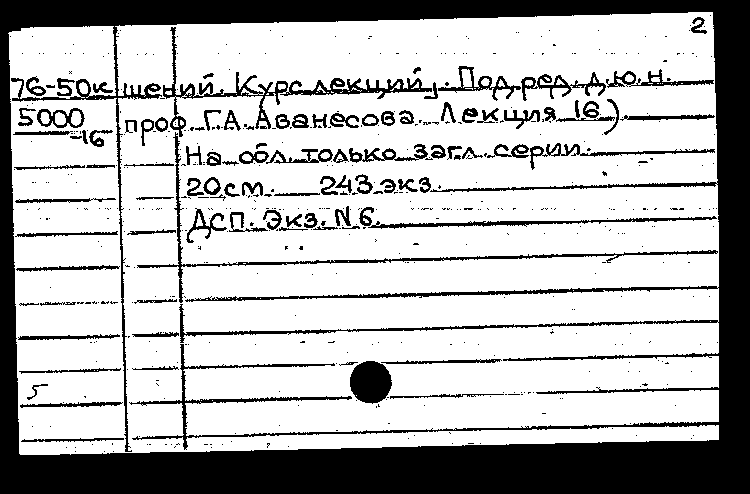 2
76-50к шений. Курс лекций, . Под ред. д.ю.н.
5000 проф. Г.А. Аванесова. Лекция 16)
-16
На обл. только загл. серии.
20 см. 243 экз.
ДСП. Экз. N 6.
5